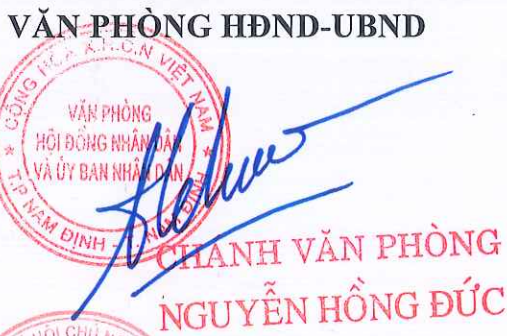 VĂN PHÒNG HĐND-UBND
CỘNG HÒA X.H.C.N VIỆT NAM
VĂN PHÒNG
HỘI ĐỒNG NHÂN DÂN
VÀ ỦY BAN NHÂN DÂN
T.P NAM ĐỊNH - T. NAM ĐỊNH
CHÁNH VĂN PHÒNG
NGUYỄN HỒNG ĐỨC